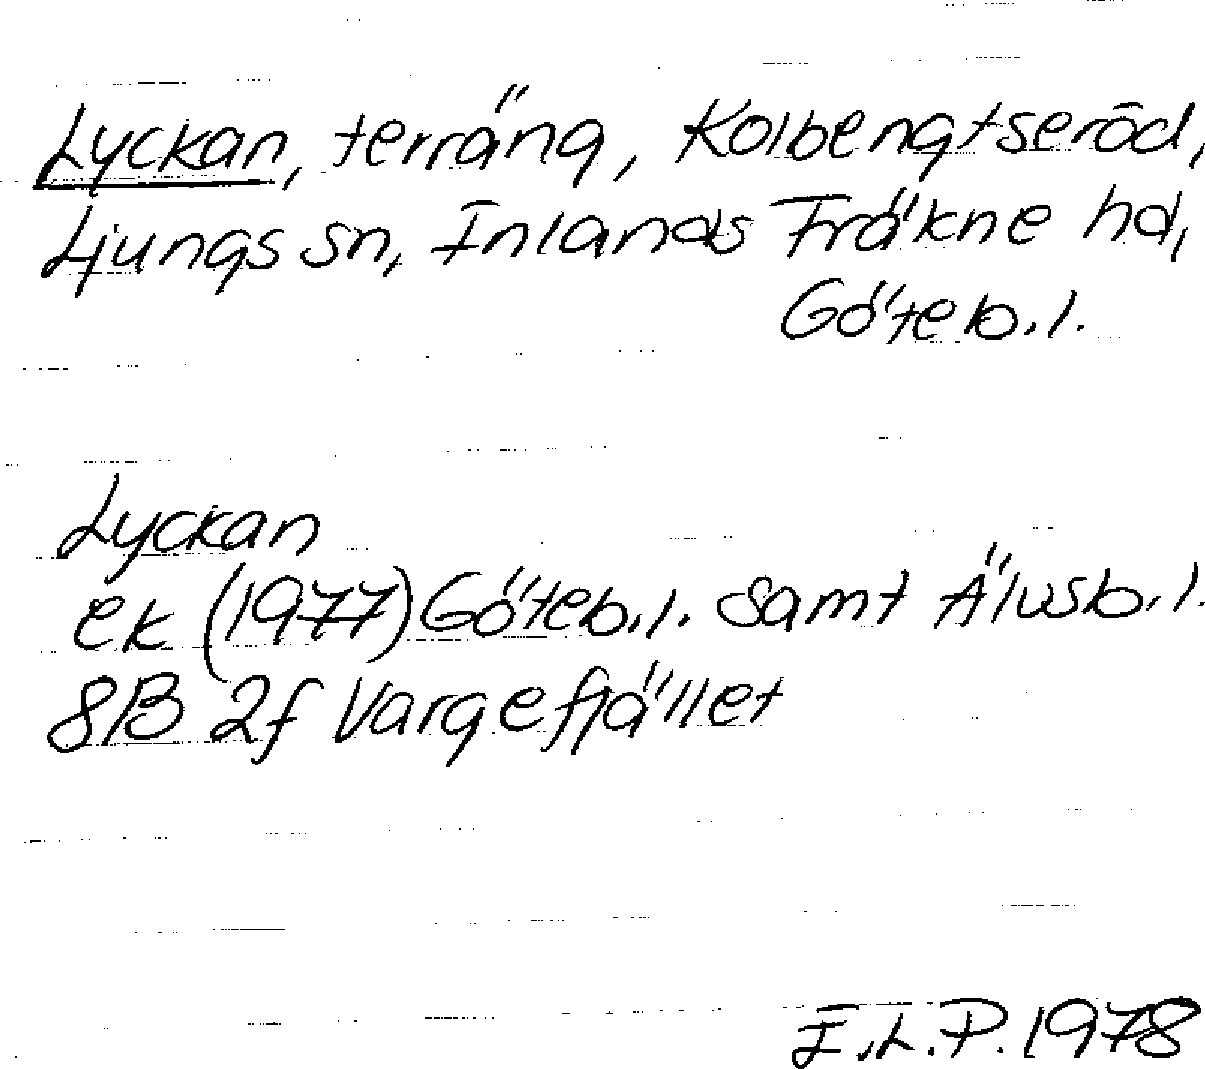 Lyckan, terräng, Kolbengtseröd,
Ljungs sn, Inlands Fräkne hd,
Göteb.l.
Lyckan
ek (1977) Göteb.l. samt Älvsb.l.
8B 2f Vargefjället
I.L.P. 1978